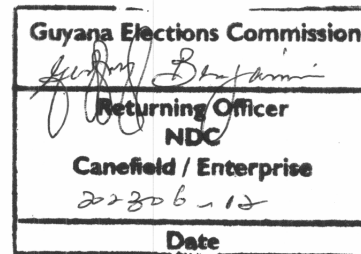 Guyana Elections Commission
Benjamin
Returning Officer
NDC
Canefield / Enterprise
202306-12
Date